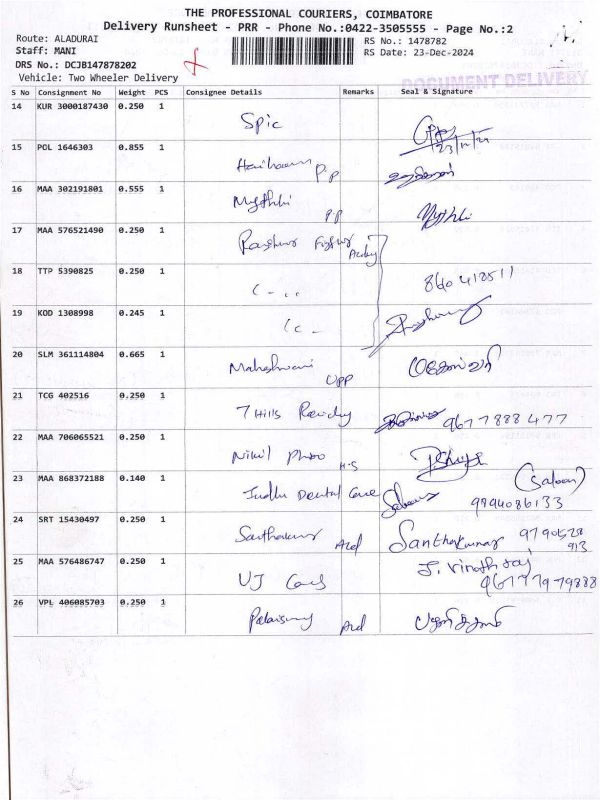 THE PROFESSIONAL COURIERS, COIMBATORE
Delivery Runsheet - PRR - Phone No.:0422-3505555 - Page No.:2
Route: ALADURAI
RS No.: 1478782
Staff: MANI
RS Date: 23-Dec-2024
DRS No.: DCJB147878202
DOCUMENT DELIVERY
Vehicle: Two Wheeler Delivery
S No Consignment No Weight PCS Consignee Details Remarks Seal & Signature
14 KUR 3000187430 0.250 1 Spic
15 POL 1646303 0.855 1 P.P
16 MAA 302191801 0.555 1 Mythhi P.P Mythhi
17 MAA 576521490 0.250 1
18 TTP 5390825 0.250 1
19 KOD 1308998 0.245 1
20 SLM 361114804 0.665 1 Maheshwari UPP மகேஸ்வரி
21 TCG 402516 0.250 1 7 Hills 9677888477
22 MAA 706065521 0.250 1 Nikil Photo H.S
23 MAA 868372188 0.140 1 Indhu Dental Care (Saboor) 9994086133
24 SRT 15430497 0.250 1 Santhakumar Ald Santhakumar 9790528 913
25 MAA 576486747 0.250 1 UJ Cars J. Vinothraj
26 VPL 406085703 0.250 1 Ald